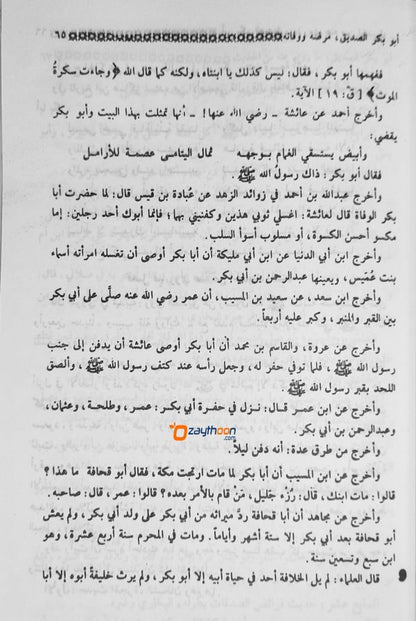 أبو بكر الصديق، مرضه ووفاته ٦٥
ففهمها أبو بكر، فقال: ليس كذلك يا ابنتاه، ولكنه كما قال الله ﴿وجاءت سكرةُ
الموت﴾ [ق: ١٩] الآية.
وأخرج أحمد عن عائشة - رضي الله عنها! - أنها تمثلت بهذا البيت وأبو بكر
يقضي:
وأبيض يستسقي الغمام بوجهه ثمال اليتامى عصمة للأرامل
فقال أبو بكر: ذاك رسولُ الله ﷺ.
وأخرج عبدالله بن أحمد في زوائد الزهد عن عُبادة بن قيس قال: لما حضرت أبا
بكر الوفاة قال لعائشة: اغسلي ثوبي هذين وكفنيني بهما؛ فإنما أبوك أحد رجلين: إما
مكسو أحسن الكسوة، أو مسلوب أسوأ السلب.
وأخرج ابن أبي الدنيا عن ابن أبي مليكة أن أبا بكر أوصى أن تغسله امرأته أسماء
بنت عُمَيس، ويعينها عبدالرحمن بن أبي بكر.
وأخرج ابن سعد، عن سعيد بن المسيب، أن عمر رضي الله عنه صلَّى على أبي بكر
بين القبر والمنبر، وكبر عليه أربعاً.
وأخرج عن عروة، والقاسم بن محمد أن أبا بكر أوصى عائشة أن يدفن إلى جنب
رسول الله ﷺ، فلما توفي حفر له، وجعل رأسه عند كتف رسول الله ﷺ، وألصق
اللحد بقبر رسول الله ﷺ.
وأخرج عن ابن عمر قال: نزل في حفرة أبي بكر: عمر، وطلحة، وعثمان،
وعبدالرحمن بن أبي بكر.
Ozaythoon.com
وأخرج من طرق عدة: أنه دفن ليلاً.
وأخرج عن ابن المسيب أن أبا بكر لما مات ارتجت مكة، فقال أبو قحافة ما هذا؟
قالوا: مات ابنك، قال: رُزْء جليل، مَنْ قام بالأمر بعده؟ قالوا: عمر، قال: صاحبه.
وأخرج عن مجاهد أن أبا قحافة ردَّ ميراثه من أبي بكر على ولد أبي بكر، ولم يعش
أبو قحافة بعد أبي بكر إلا ستة أشهر وأياماً. ومات في المحرم سنة أربع عشرة، وهو
ابن سبع وتسعين سنة.
قال العلماء: لم يل الخلافة أحد في حياة أبيه إلا أبو بكر، ولم يرث خليفةً أبوه إلا أبا